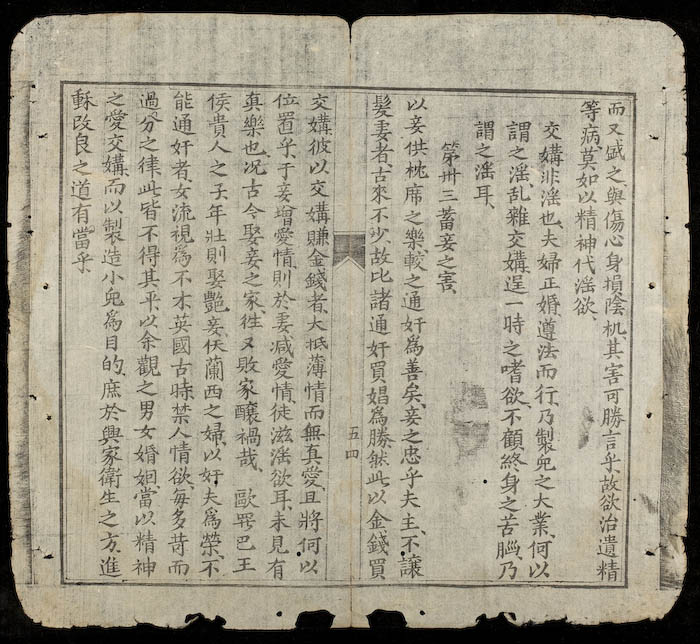 而又鹹之、與傷心身損陰机、其害可勝言乎、故欲治遺精
等病莫如以精神代淫欲、
交媾非淫也、夫婦正婚、遵法而行、乃製兒之大業、何以
謂之淫乱雜交媾、逞一時之嗜欲、不顧終身之苦腦、乃
謂之淫耳、
第卅三蓄妾之害、
以妾供枕席之樂較之通奸為善矣、妾之忠乎夫主、不讓
髮妻者、古來不少故比諸通奸買娼為勝然此以金錢買
五四
交媾彼以交媾賺金錢者、大抵薄情而無真愛、且將何以
位置乎、于妾增愛情、則於妻減愛情、徒滋淫欲耳、未見有
真樂也、况古今娶妾之家、徃々敗家釀禍哉 歐罗巴王
侯貴人之子年壯則娶艷妾、仸蘭西之婦、以奸夫為榮、不
能通奸者、女流視為不才英國古時禁人情欲、每多苛而
過分之律、此皆不得其平、以余觀之男女婚姻、當以精神
之愛交媾、而以製造小兒為目的、庶於興家衛生之方、進
穌改良之道有當乎、